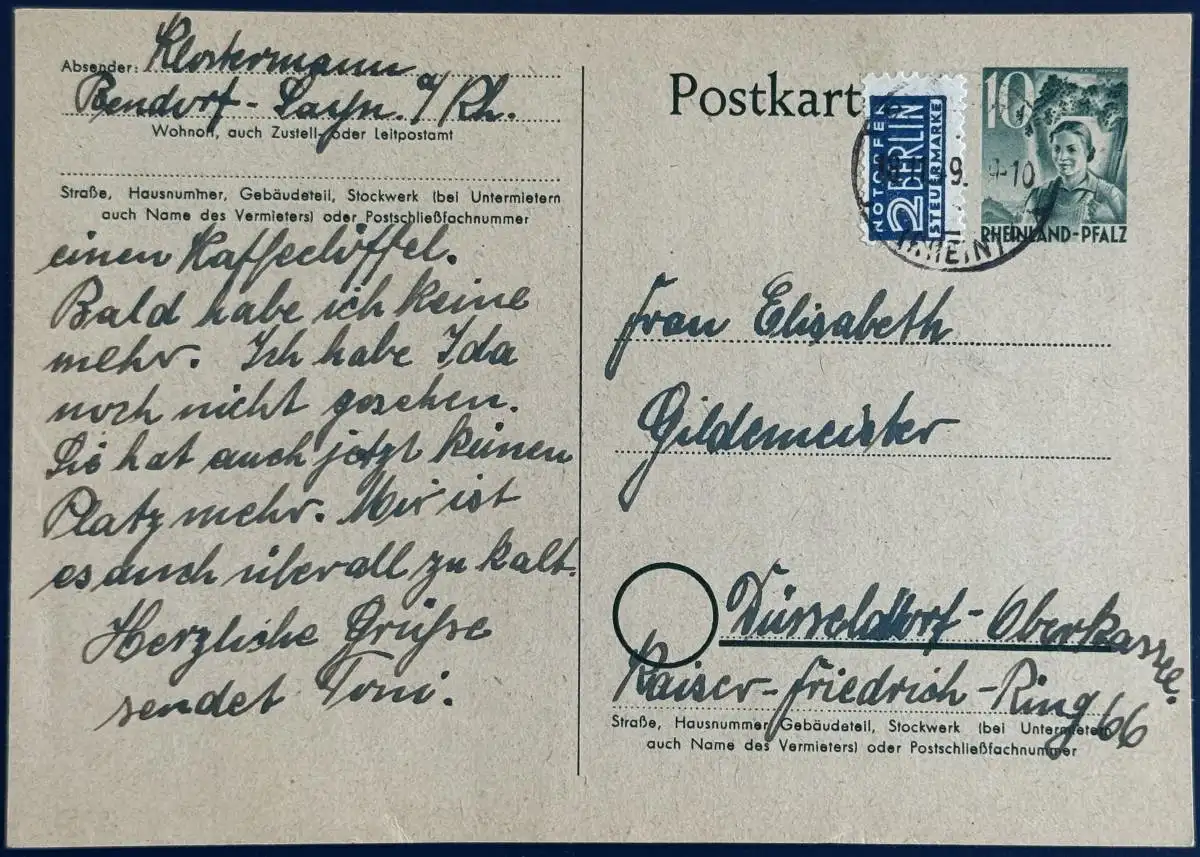 Absender: Klostermann
Bendorf-Sayn. a/Rh.
Wohnort, auch Zustell- oder Leitpostamt
Straße, Hausnummer, Gebäudeteil, Stockwerk (bei Untermietern
auch Name des Vermieters) oder Postschließfachnummer
einen Kaffeelöffel.
Bald habe ich keine
mehr. Ich habe Ida
noch nicht gesehen.
Sie hat auch jetzt keinen
Platz mehr. Mir ist
es auch überall zu kalt.
Herzliche Grüsse
sendet Toni.
Postkart
NOTOPFER
2 BERLIN
STEUERMARKE
49. 9-10
(RHEIN)
10
RHEINLAND-PFALZ
Frau Elisabeth
Gildemeister
Düsseldorf-Oberkassel.
Kaiser-Friedrich-Ring 66
Straße, Hausnummer, Gebäudeteil, Stockwerk (bei Untermietern
auch Name des Vermieters) oder Postschließfachnummer